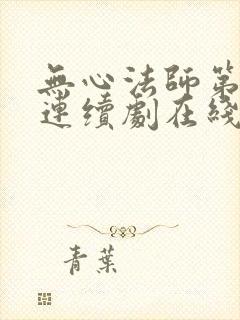 無心法師第
連續劇在綫
青葉